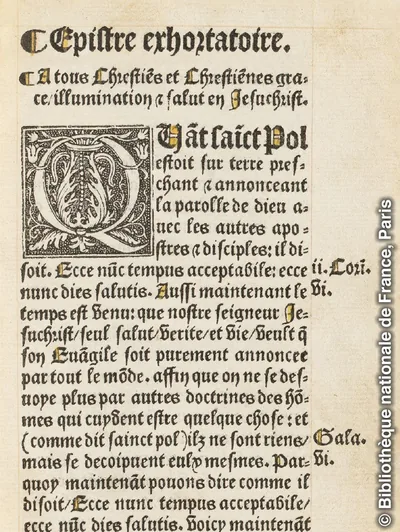 ¶ Epistre exhortatoire.
¶ A tous Chrestiẽs et Chrestiẽnes gra-
ce/illumination ⁊ salut en Jesuchrist.
QUãt saĩct Pol
estoit sur terre pres-
chant ⁊ annonceant
la parolle de dieu a-
uec les autres apo-
stres ⁊ disciples: il di-
soit. Ecce nũc tempus acceptabile: ecce
nunc dies salutis. Aussi maintenant le
temps est venu: que nostre seigneur Je-
suchrist/seul salut/verite/et vie/veult q̃
son Euãgile soit purement annoncee
par tout le mõde. affin que on ne se des-
uoye plus par autres doctrines des hõ-
mes qui cuydent estre quelque chose: et
(comme dit sainct pol) ilz ne sont riens/
mais se decoipuent eulx mesmes. Par-
quoy maintenãt pouons dire comme il
disoit/Ecce nunc tempus acceptabile/
ecce nũc dies salutis. Voicy maintenãt
ii. Corĩ.
vi.
Gala.
vi.
© Bibliothèque nationale de France, Paris